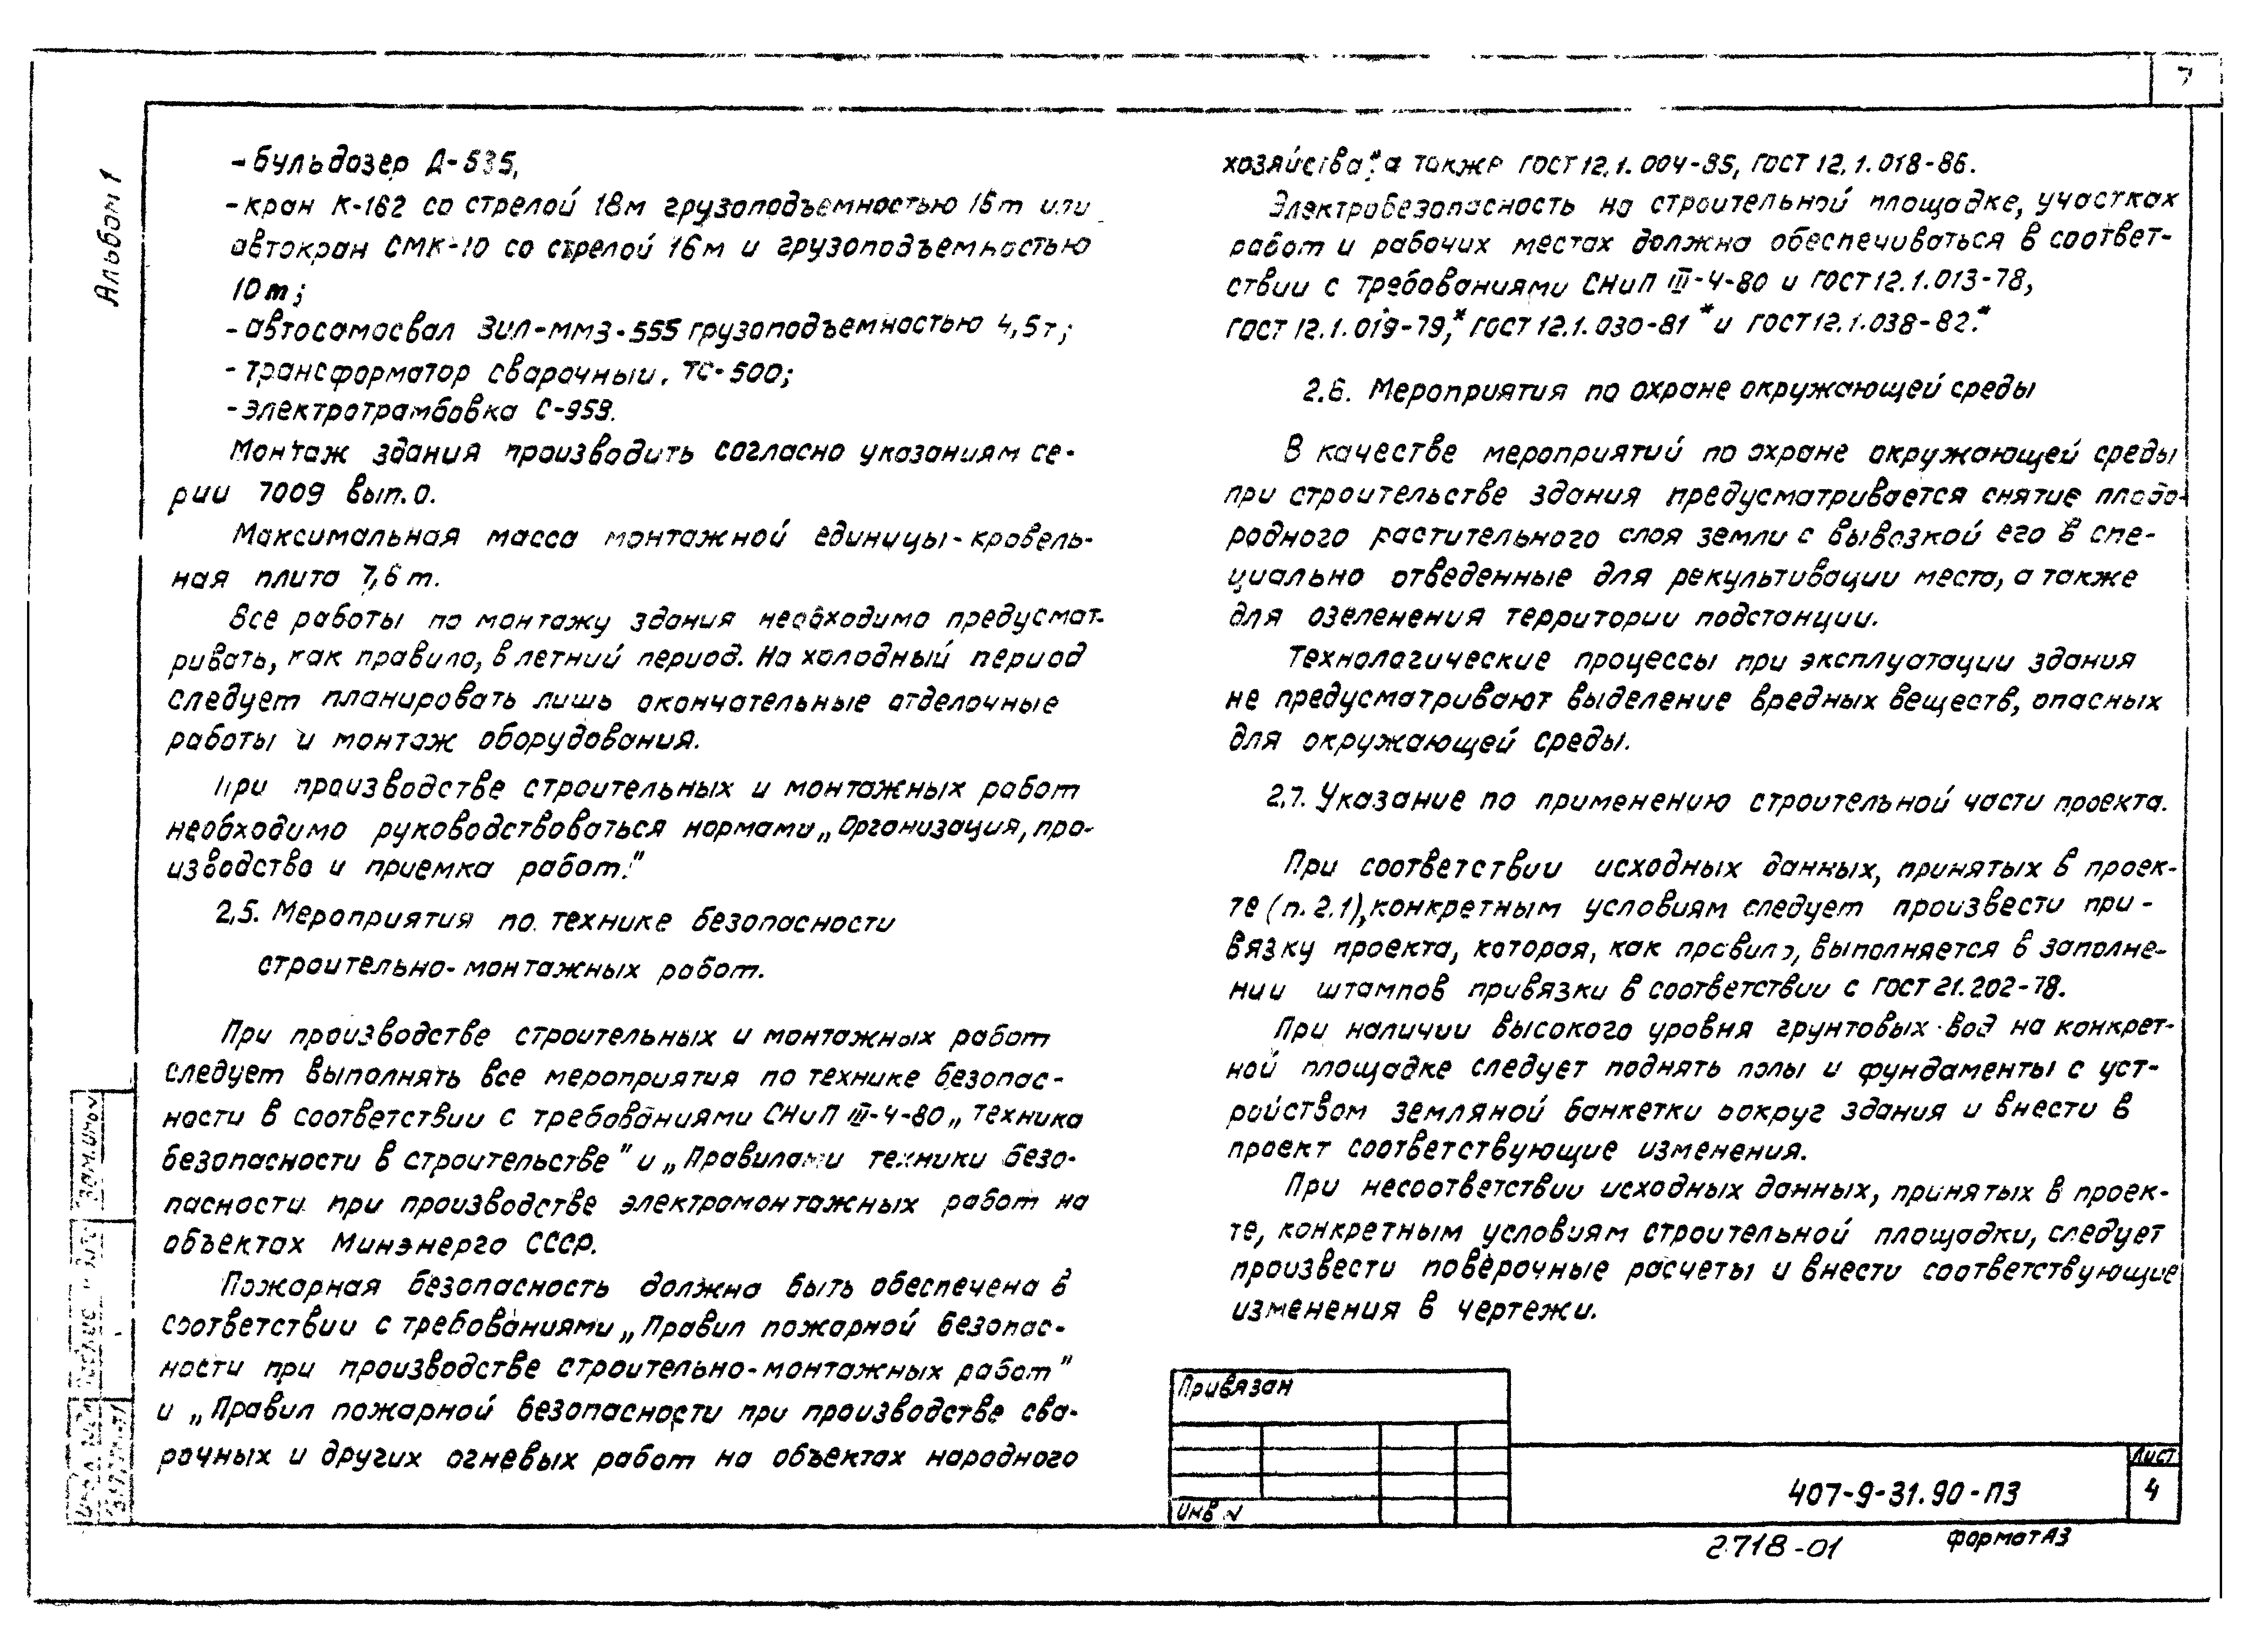 7
Альбом 1
- бульдозер Д-535,
- кран К-162 со стрелой 18м грузоподъемностью 16т или
автокран СМК-10 со стрелой 16м и грузоподъемностью
10т;
- автосамосвал ЗИЛ-ММЗ-555 грузоподъемностью 4,5т;
- трансформатор сварочный, ТС-500;
- электротрамбовка С-959.
Монтаж здания производить согласно указаниям се-
рии 7009 вып. 0.
Максимальная масса монтажной единицы - кровель-
ная плита 7,6 т.
Все работы по монтажу здания необходимо предусмат-
ривать, как правило, в летний период. На холодный период
следует планировать лишь окончательные отделочные
работы и монтаж оборудования.
При производстве строительных и монтажных работ
необходимо руководствоваться нормами „Организация, про-
изводство и приемка работ."
2,5. Мероприятия по технике безопасности
строительно-монтажных работ.
При производстве строительных и монтажных работ
следует выполнять все мероприятия по технике безопас-
ности в соответствии с требованиями СНиП III-4-80 „Техника
безопасности в строительстве" и „Правилами техники безо-
пасности при производстве электромонтажных работ на
объектах Минэнерго СССР.
Пожарная безопасность должна быть обеспечена в
соответствии с требованиями „Правил пожарной безопас-
ности при производстве строительно-монтажных работ"
и „Правил пожарной безопасности при производстве сва-
рочных и других огневых работ на объектах народного
хозяйства", а также ГОСТ 12.1.004-85, ГОСТ 12.1.018-86.
Электробезопасность на строительной площадке, участках
работ и рабочих местах должна обеспечиваться в соответ-
ствии с требованиями СНиП III-4-80 и ГОСТ 12.1.013-78,
ГОСТ 12.1.019-79,* ГОСТ 12.1.030-81 * и ГОСТ 12.1.038-82.*
2.6. Мероприятия по охране окружающей среды
В качестве мероприятий по охране окружающей среды
при строительстве здания предусматривается снятие плодо-
родного растительного слоя земли с вывозкой его в спе-
циально отведенные для рекультивации места, а также
для озеленения территории подстанции.
Технологические процессы при эксплуатации здания
не предусматривают выделение вредных веществ, опасных
для окружающей среды.
2.7. Указание по применению строительной части проекта.
При соответствии исходных данных, принятых в проек-
те (п. 2.1), конкретным условиям следует произвести при-
вязку проекта, которая, как правило, выполняется в заполне-
нии штампов привязки в соответствии с ГОСТ 21.202-78.
При наличии высокого уровня грунтовых вод на конкрет-
ной площадке следует поднять полы и фундаменты с уст-
ройством земляной банкетки вокруг здания и внести в
проект соответствующие изменения.
При несоответствии исходных данных, принятых в проек-
те, конкретным условиям строительной площадки, следует
произвести поверочные расчеты и внести соответствующие
изменения в чертежи.
Привязан
Инв №
407-9-31.90-ПЗ
Лист
4
2718-01
Формат А3
Взам. инв №